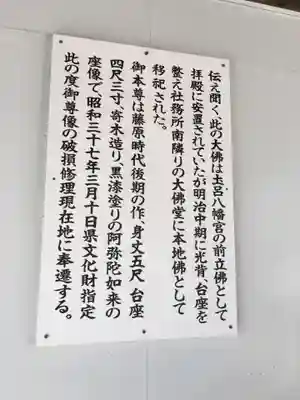 伝え聞く、此の大佛は土呂八幡宮の前立佛として
拝殿に安置されていたが明治中期に光背、台座を
整え社務所南隣りの大佛堂に本地佛として
移祀された。
御本尊は藤原時代後期の作、身丈五尺、台座
四尺三寸、寄木造り、黒漆塗りの阿弥陀如来の
座像で、昭和三十七年三月十日県文化財指定
此の度御尊像の破損修理現在地に奉遷する。